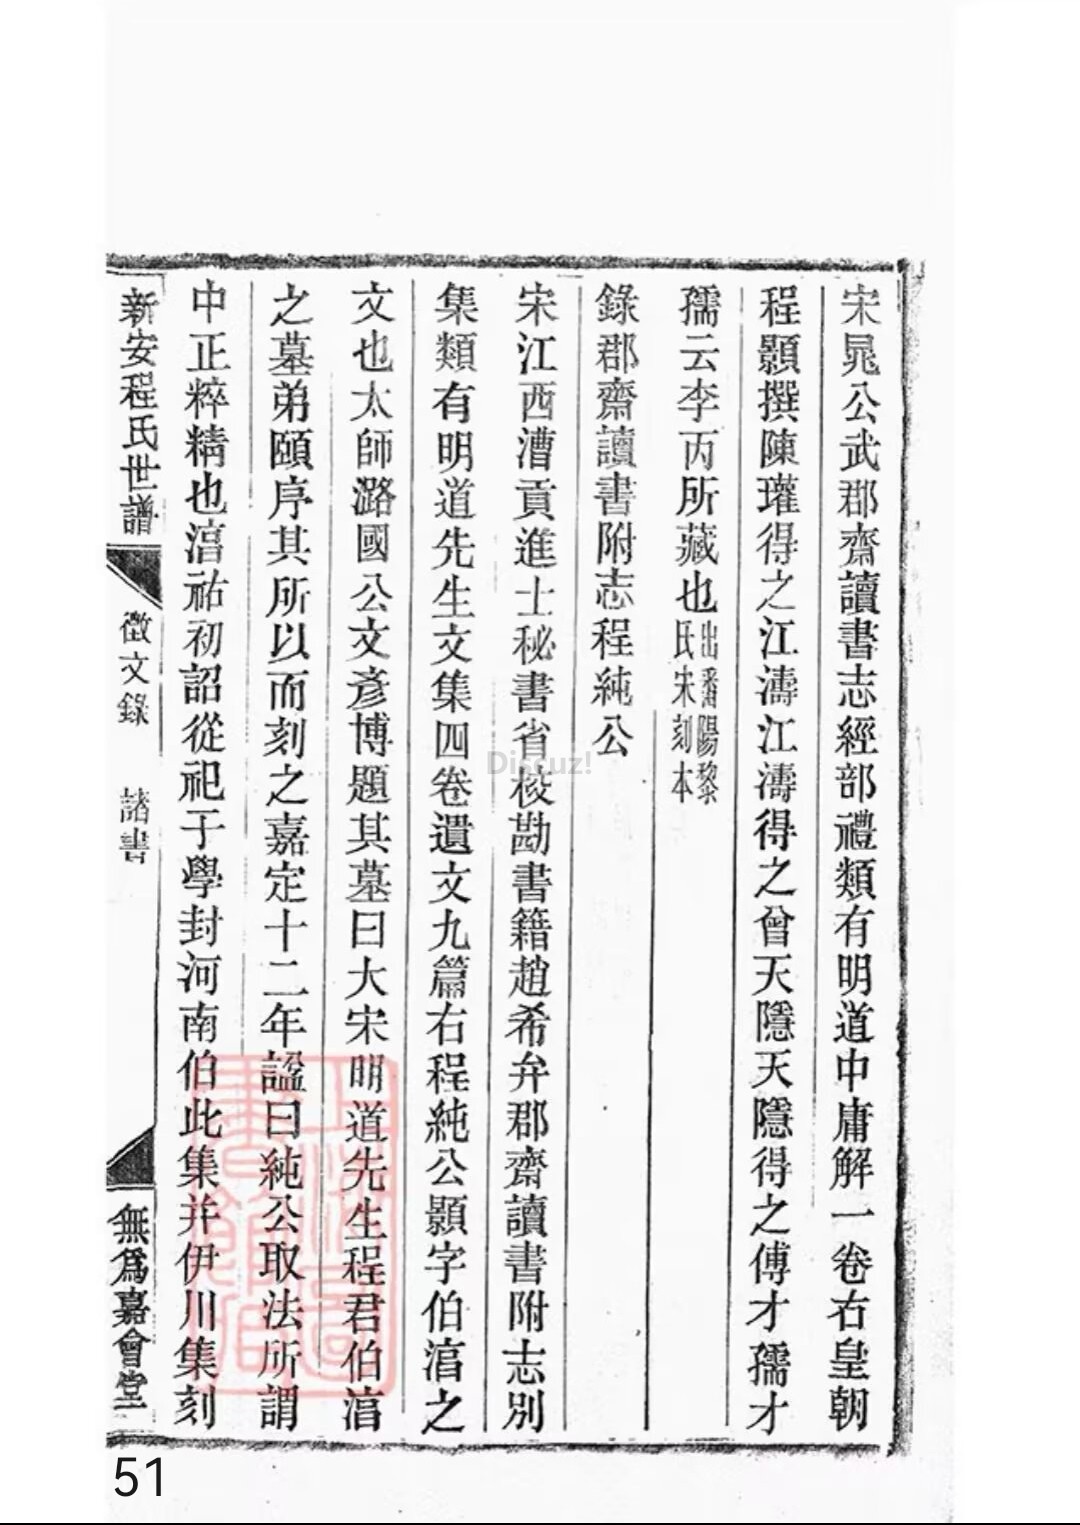 宋晁公武郡齋讀書志經部禮類有明道中庸解一卷右皇朝
程顥撰陳瓘得之江濤江濤得之曾天隱天隱得之傅才孺才
孺云李丙所藏也出潘陽黎
氏宋刻本
錄郡齋讀書附志程純公
宋江西漕貢進士秘書省校勘書籍趙希弁郡齋讀書附志別
集類有明道先生文集四卷遺文九篇右程純公顥字伯湻之
文也太師潞國公文彥博題其墓曰大宋明道先生程君伯湻
之墓弟頤序其所以而刻之嘉定十二年諡曰純公取法所謂
中正粹精也湻祐初詔從祀于學封河南伯此集并伊川集刻
新安程氏世譜 徵文錄 諸書 無爲嘉會堂
Discuz!
51